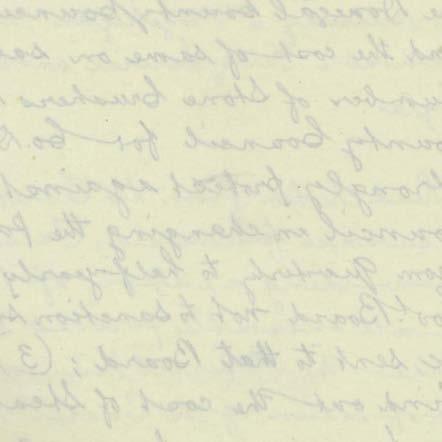 Donegal County Counci
nd the cost of same on sa
umber of Stone breakers
ounty Council for Co. D
trongly protest against
ouncil in changing the fr
om Quarterly to half-yearly
ovt. Board not to sanction s
e sent to that Board; (3
ind out the cost of Stea